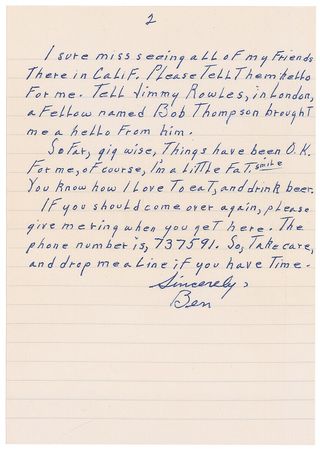 2
I sure miss seeing all of my Friends
There in Calif. Please Tell Them hello
For me. Tell Jimmy Rowles, in London,
a Fellow named Bob Thompson brought
me a hello From him.
So Far, gig wise, Things have been O.K.
For me, of course, I'm a Little Fat. smile
You know how I Love To eat, and drink beer.
IF you should come over again, please
give me ring when you get here. The
phone number is, 737591. So, Take care,
and drop me a Line if you have Time.
Sincerely,
Ben